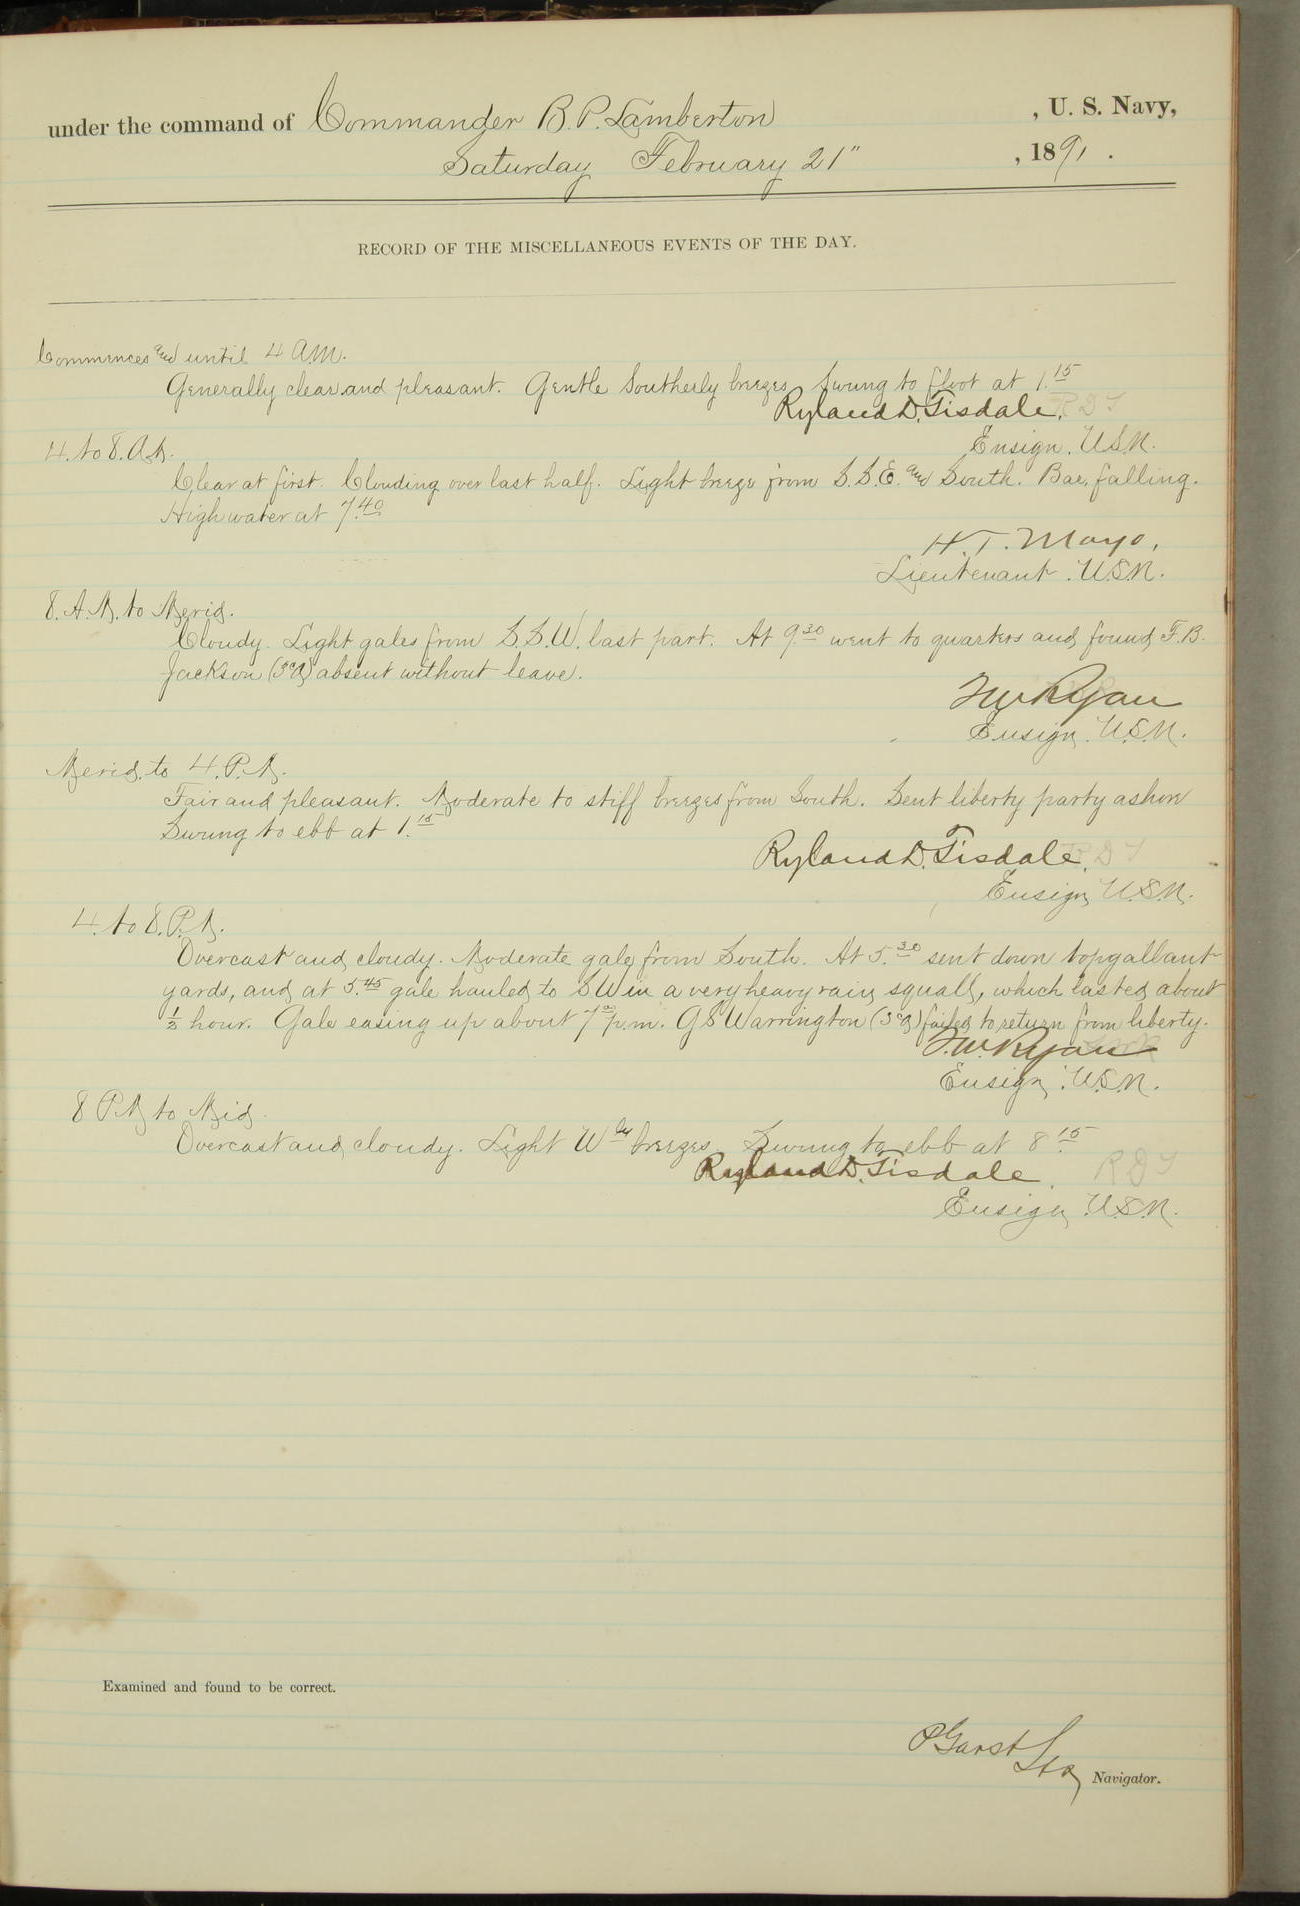 under the command of Commander B. P. Lamberton , U. S. Navy,
Saturday February 21" , 1891 .
RECORD OF THE MISCELLANEOUS EVENTS OF THE DAY.
Commences and until 4 A.M.
Generally clear and pleasant. Gentle Southerly breezes. Swung to flood at 1.15
Ryland D. Tisdale. R D T
Ensign. U.S.N.
4. to 8. A.M.
Clear at first. Clouding over last half. Light breeze from S.S.E. and South. Bar. falling.
High water at 7.40
H. T. Mayo,
Lieutenant. U.S.N.
8. A.M. to Merid.
Cloudy. Light gales from S.S.W. last part. At 9.30 went to quarters and found F. B.
Jackson absent without leave.
T W Ryan
Ensign. U.S.N.
Merid. to 4. P.M.
Fair and pleasant. Moderate to stiff breezes from South. Sent liberty party ashore
Swung to ebb at 1.15
Ryland D. Tisdale. R D T
Ensign, U.S.N.
4. to 8. P.M.
Overcast and cloudy. Moderate gale from South. At 5.30 sent down topgallant
yards, and at 5.45 gale hauled to SW in a very heavy rain squall, which lasted about
½ hour. Gale easing up about 7 p.m. G S Warrington failed to return from liberty.
T. W. Ryan
Ensign. U.S.N.
8 P.M. to Mid.
Overcast and cloudy. Light Wly breezes. Swung to ebb at 8.15
Ryland D. Tisdale. R D T
Ensign, U.S.N.
Examined and found to be correct.
P Garst
Navigator.